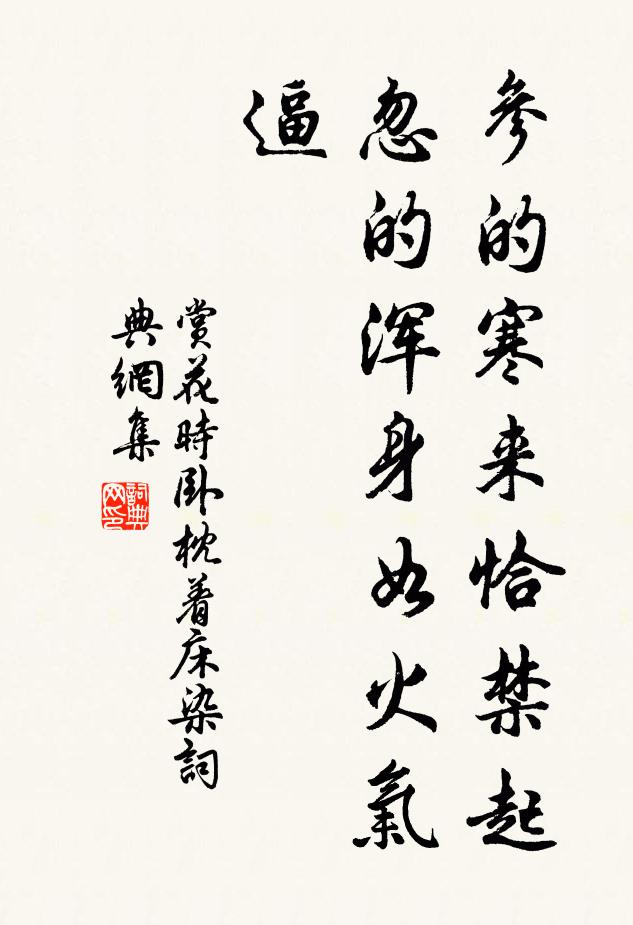 参的寒来恰禁起
忽的浑身如火氣
逼
賞花時卧枕着床染詞
典網集
詞典
网印